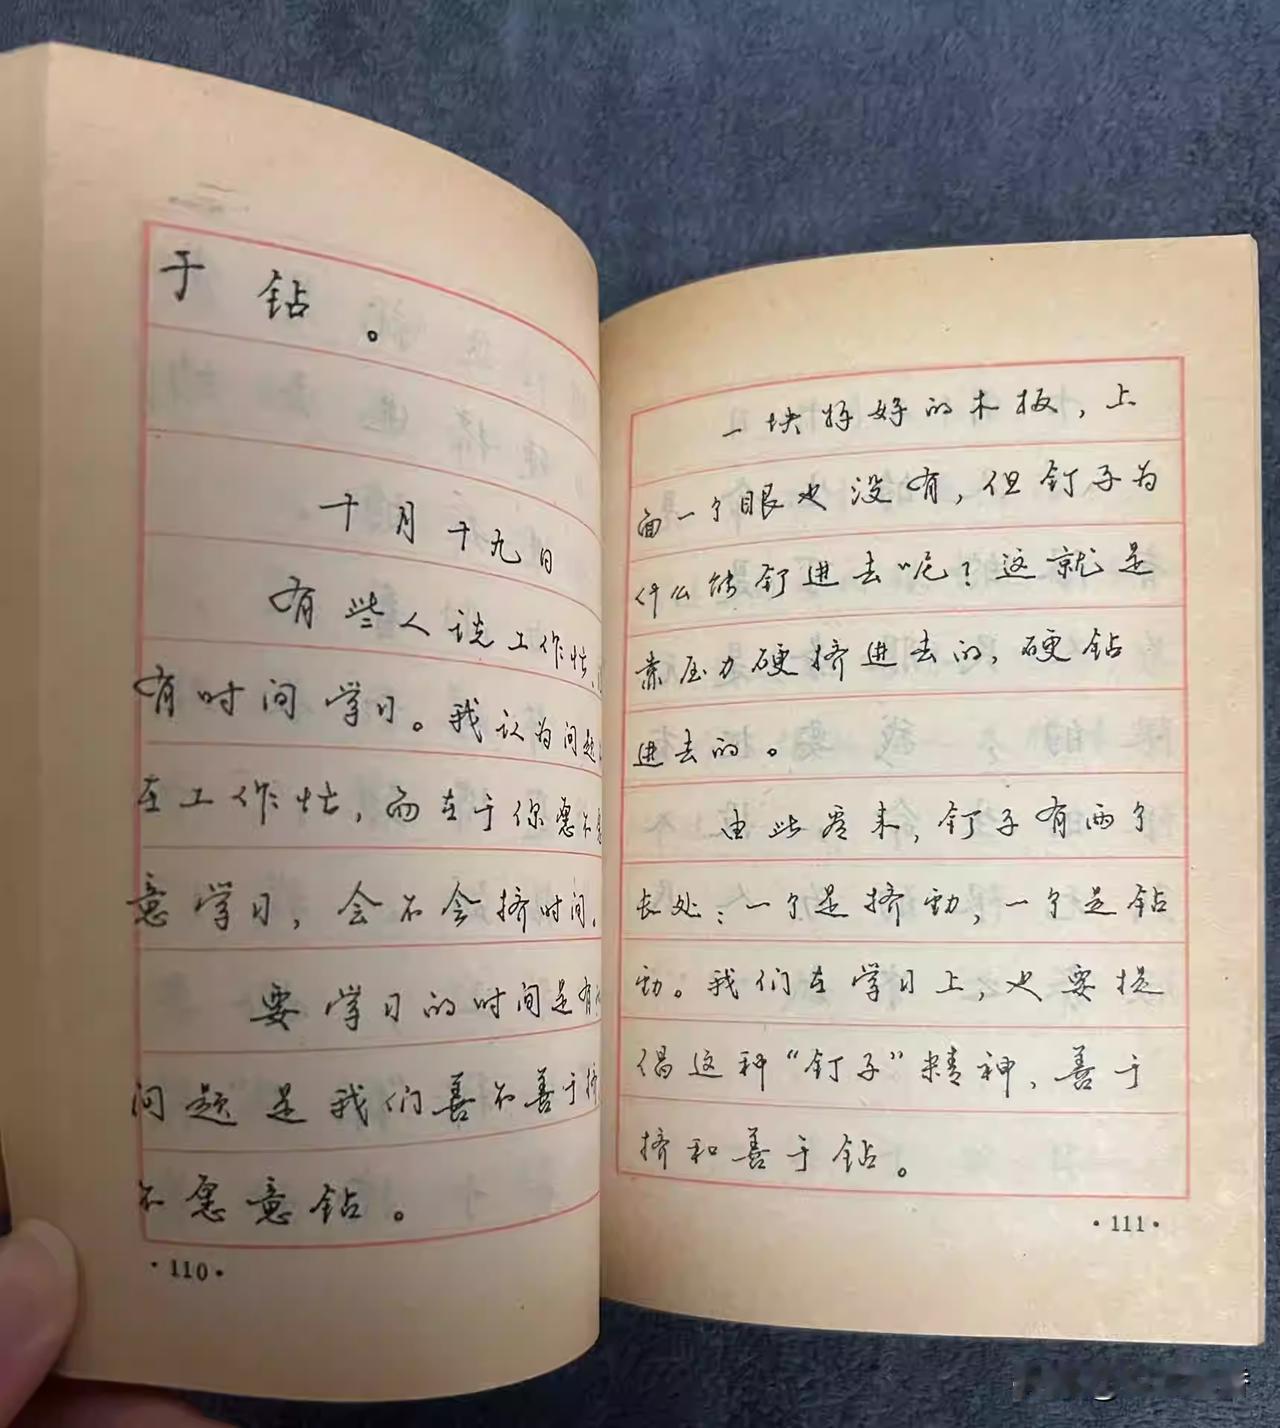 于钻。
十月十九日
有些人说工作忙、
有时间学习。我认为问题
在工作忙，而在于你愿不
意学习，会不会挤时间。
要学习的时间是有
问题是我们善不善于挤
不愿意钻。
·110·
一块好好的木板，上
面一个眼也没有，但钉子为
什么能钉进去呢？这就是
靠压力硬挤进去的，硬钻
进去的。
由此看来，钉子有两个
长处：一个是挤劲，一个是钻
劲。我们在学习上，也要提
倡这种“钉子”精神，善于
挤和善于钻。
·111·